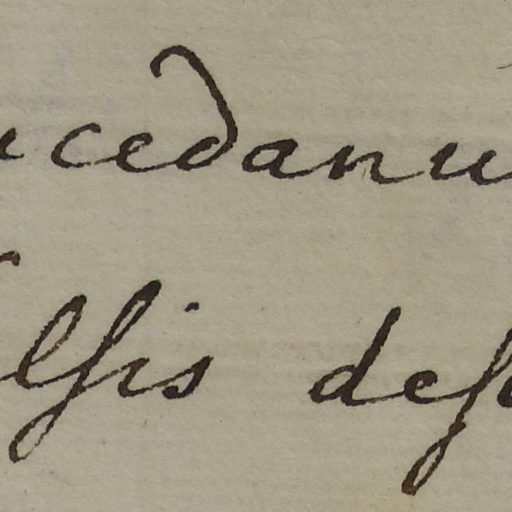 ucedanu
lſis deſ